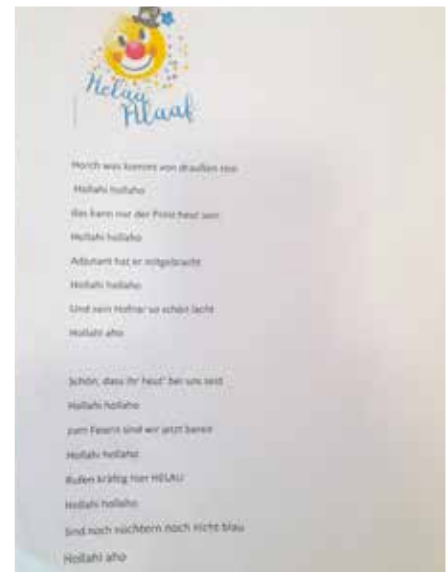 Helau
Alaaf
Horch was kommt von draußen rein
Hollahi hollaho
das kann nur der Prinz heut sein
Hollahi hollaho
Adjutant hat er mitgebracht
Hollahi hollaho
Und sein Hofnar so schön lacht
Hollahi aho
Schön, dass ihr heut' bei uns seid
Hollahi hollaho
zum Feiern sind wir jetzt bereit
Hollahi hollaho
Rufen kräftig hier HELAU
Hollahi hollaho
Sind noch nüchtern noch nicht blau
Hollahi aho